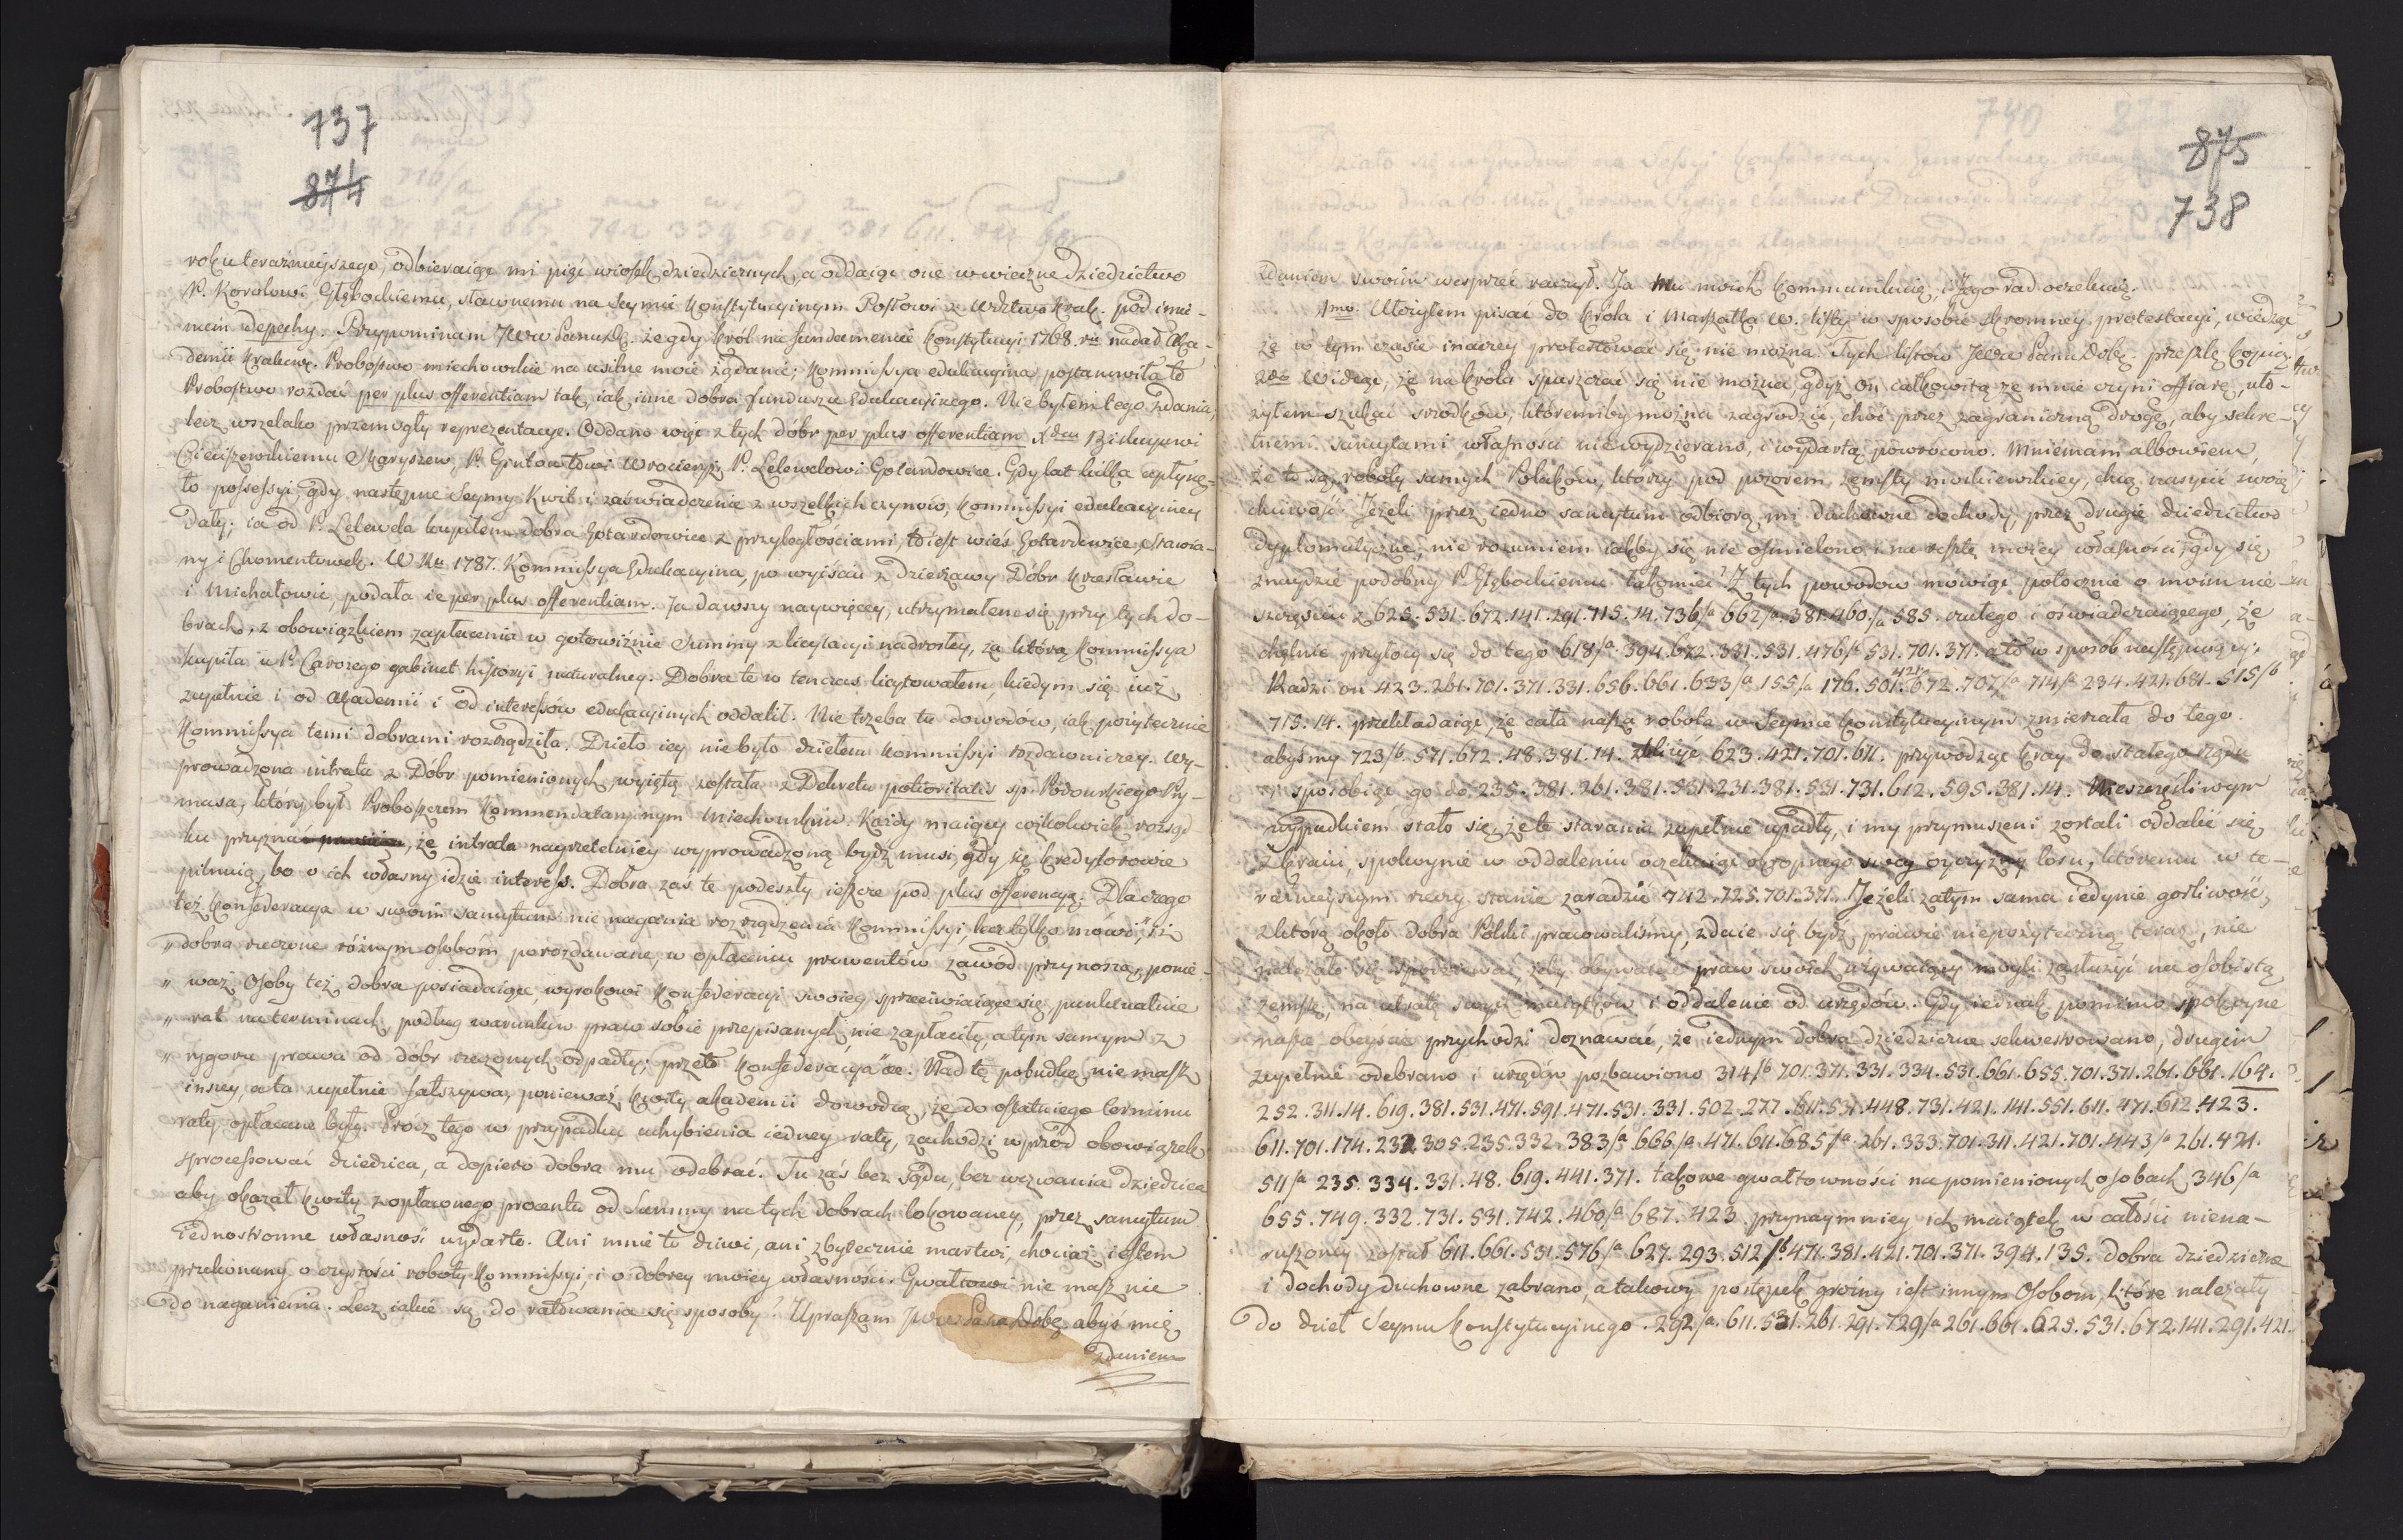 737
874
roku teraźnieyszego, odbieraiąc mi pięć wiosek dziedzicznych, a oddaiąc one w wieczne Dziedzictwo
P. Karolowi Głębockiemu, sławnemu na Seymie Konstytucyinym Posłowi z Wdztwa Krak. pod imie-
niem depechy. Przypominam JWW Panu Db. że gdy Król na fundamencie Konstytucyi 1768. nadał Aka-
demii Krakow. Probostwo miechowskie na usilne moie żądanie; Kommissya edukacyina postanowiła to
Probostwo rozdać per plus offerentiam tak, iak inne dobra funduszu Edukacyinego. Nie byłem tego zdania,
lecz wszelako przemogły reprezentacye. Oddano więc z tych dóbr per plus offerentiam Xdzu Biskupowi
Cieciszewskiemu Skaryszew, P. Gintowtowi Wrocieryż, P. Lelewelowi Gołardowice. Gdy lat kilka upłynę-
ło possessyi, gdy następne Seymy Kwit i zaświadczenie z wszelkich czynów, Kommissyi edukacyiney
dały; ia od P. Lelewela kupiłem dobra Gołardowice z przyległościami, to iest wieś Gołardowice, Stawia-
ny i Chomentowek. W Rku 1787. Kommissya Edukacyina, po wyiściu z dzierżawy Dóbr Krzesławic
i Michałowic, podała ie per plus offerentiam. Ja dawszy naywięcey, utrzymałem się przy tych do-
brach, z obowiązkiem zapłacenia w gotowiźnie Summy z licytacyi nadrosłey, za którą Kommissya
kupiła u P. Carozego gabinet historyi naturalney. Dobra te w tenczas licytowałem, kiedym się iuż
zupełnie i od Akademii i od interessów edukacyinych oddalił. Nie trzeba tu dowodów, iak pożytecznie
Kommissya temi dobrami rozrządziła. Dzieło iey nie było dziełem Kommissyi rozdawniczey. Wy-
prowadzona intrata z Dóbr pomienionych, wyiętą została z Dekretu potioritatis sp. Podowskiego Pry-
masa, który był Proboszczem Kommendataryinym Miechowskim. Każdy maiący cożkolwiek rozsąd-
ku przyzna, że intrata nayrzetelniey wyprowadzoną bydź musi, gdy się Kredytorowie
pilnuią, bo o ich własny idzie interess. Dobra zaś te podeszły ieszcze pod plus offerencyą. Dla czego
też konfederacya w swoim sancytum nie nagania rozrządzenia Kommissyi, lecz tylko mówi: „iż
„dobra rzeczone różnym osobom porozdawane, w opłaceniu prowentów zawód przynoszą, ponie-
„waż Osoby też dobra posiadaiące, wyrokowi Konfederacyi swoiey sprzeciwiaiące się, punktualnie
„rat na terminach podług warunków praw sobie przepisanych, nie zapłaciły, a tym samym z
„rygoru prawa od dóbr rzeczonych odpadły; przeto Konfederacya" &c. Nad tę pobudkę nie masz
inszey, a ta zupełnie fałszywa, ponieważ kwity akademii dowodzą, że do ostatniego terminu
raty opłacone były. Prócz tego w przypadku uchybienia iedney raty, zachodzi wprzód obowiązek
sprocessować dziedzica, a dopiero dobra mu odebrać. Tu zaś bez sądu, bez wezwania dziedzica
aby okazał kwity z opłaconego procentu od Summy na tych dobrach lokowaney, przez sancytum
iednostronne własność wydarto. Ani mnie to dziwi, ani zbytecznie martwi, chociaż iestem
przekonany o czystości roboty Kommissyi, i o dobrey moiey własności. Gwałtowi nie masz nic
do naganienia. Lecz iakie są do ratowania się sposoby? Upraszam JWW Pana Dobr. abyś mię
zdaniem
875
738
zdaniem swoim wesprzeć raczył. Ja mu moich kommunikuię, i Jego rad oczekuię.
1mo. Ułożyłem pisać do Króla i Marszałka W. listy w sposobie skromney protestacyi, wiedząc
że w tym czasie inaczey protestować się nie można. Tych listów JWW Panu Dobr. przeszlę kopią.
2do Widząc, że na Króla spuszczać się nie można, gdyż On całkowitą ze mnie czyni offiarę, uło-
żyłem szukać środków, któremiby można zagrodzić, choć przez zagraniczną drogę, aby sekre-
tnemi sancytami własności nie wydzierano, i wydartą powrócono. Mniemam albowiem,
że to są roboty samych Polaków, którzy pod pozorem zemsty moskiewskiey, chcą nasycić swoią
chciwość. Jeżeli przez iedno sancytum odbiorą mi duchowne dochody, przez drugie dziedzictwo
dyplomatyczne, nie rozumiem iakby się nie ośmielono, i na resztę moiey własności, gdy się
znaydzie podobny P. Głębockiemu łakomiec? Z tych powodów mówiąc potocznie o moim nie-
szczęściu z 625. 531. 672. 141. 291. 715. 14. 736/a 662/a. 381. 460./a 585. czułego i oświadczaiącego, że
chętnie przyłoży się do tego 618/a. 394. 672. 381. 531. 476/a 531. 701. 371. a to w sposób następuiący:
Radzi on 423. 261. 701. 371. 331. 656. 661. 633/a 155/a 176. 501. 421. 672. 707/a 714/a 234. 421. 681. 515/b
715. 14. przekładaiąc, że cała nasza robota w Seymie konstytucyinym zmierzała do tego
abyśmy 723/b. 571. 672. 48. 381. 14. zbliżyć 623. 421. 701. 611. przywodząc kray do stałego rządu
sposobiąc go do 235. 381. 261. 381. 531. 231. 381. 531. 731. 612. 595. 381. 14. Nieszczęśliwym
przypadkiem stało się, że te starania zupełnie upadły, i my przymuszeni zostali oddalić się
z kraiu, spokoynie w oddaleniu oczekuiąc okropnego swey oyczyzny losu, któremu w te-
raźnieyszym rzeczy stanie zaradzić 742. 725. 701. 371. Jeżeli zatym sama iedynie gorliwość,
z którą około dobra Polski pracowaliśmy, zdaie się bydź prawie niepożyteczną teraz, nie
należało się spodziewać, żeby obywatele praw swoich używaiący mogli zasłużyć na osobistą
zemstę, na utratę swych maiątków i oddalenie od urzędów. Gdy iednak pomimo spokoyne
nasze obeyście przychodzi doznawać, że iednym dobra dziedziczne sekwestrowano, drugim
zupełnie odebrano i urzędów pozbawiono 314/b 701. 371. 331. 334. 531. 661. 655. 701. 371. 261. 661. 164.
252. 311. 14. 619. 381. 531. 471. 591. 471. 531. 331. 502. 277. 611. 531. 448. 731. 421. 141. 551. 611. 471. 612. 423.
611. 701. 174. 232. 305. 235. 332. 383/a 666/a. 471. 611. 685/a. 261. 333. 701. 311. 421. 701. 443/a 261. 421.
511/a 235. 334. 331. 48. 619. 441. 371. takowe gwałtowności na pomienionych osobach 346/a
655. 749. 332. 731. 531. 742. 460/a 687. 423. przynaymniey ich maiątek w całości niena-
ruszoney został 611. 661. 531. 576/a 627. 293. 512/b 471. 381. 421. 701. 371. 394. 135. dobra dziedziczne
i dochody duchowne zabrano, a takowy postępek groźny iest innym Osobom, które należały
do dzieł Seymu konstytucyinego. 292/a. 611. 531. 261. 291. 729/a 261. 661. 623. 531. 672. 141. 291. 421.